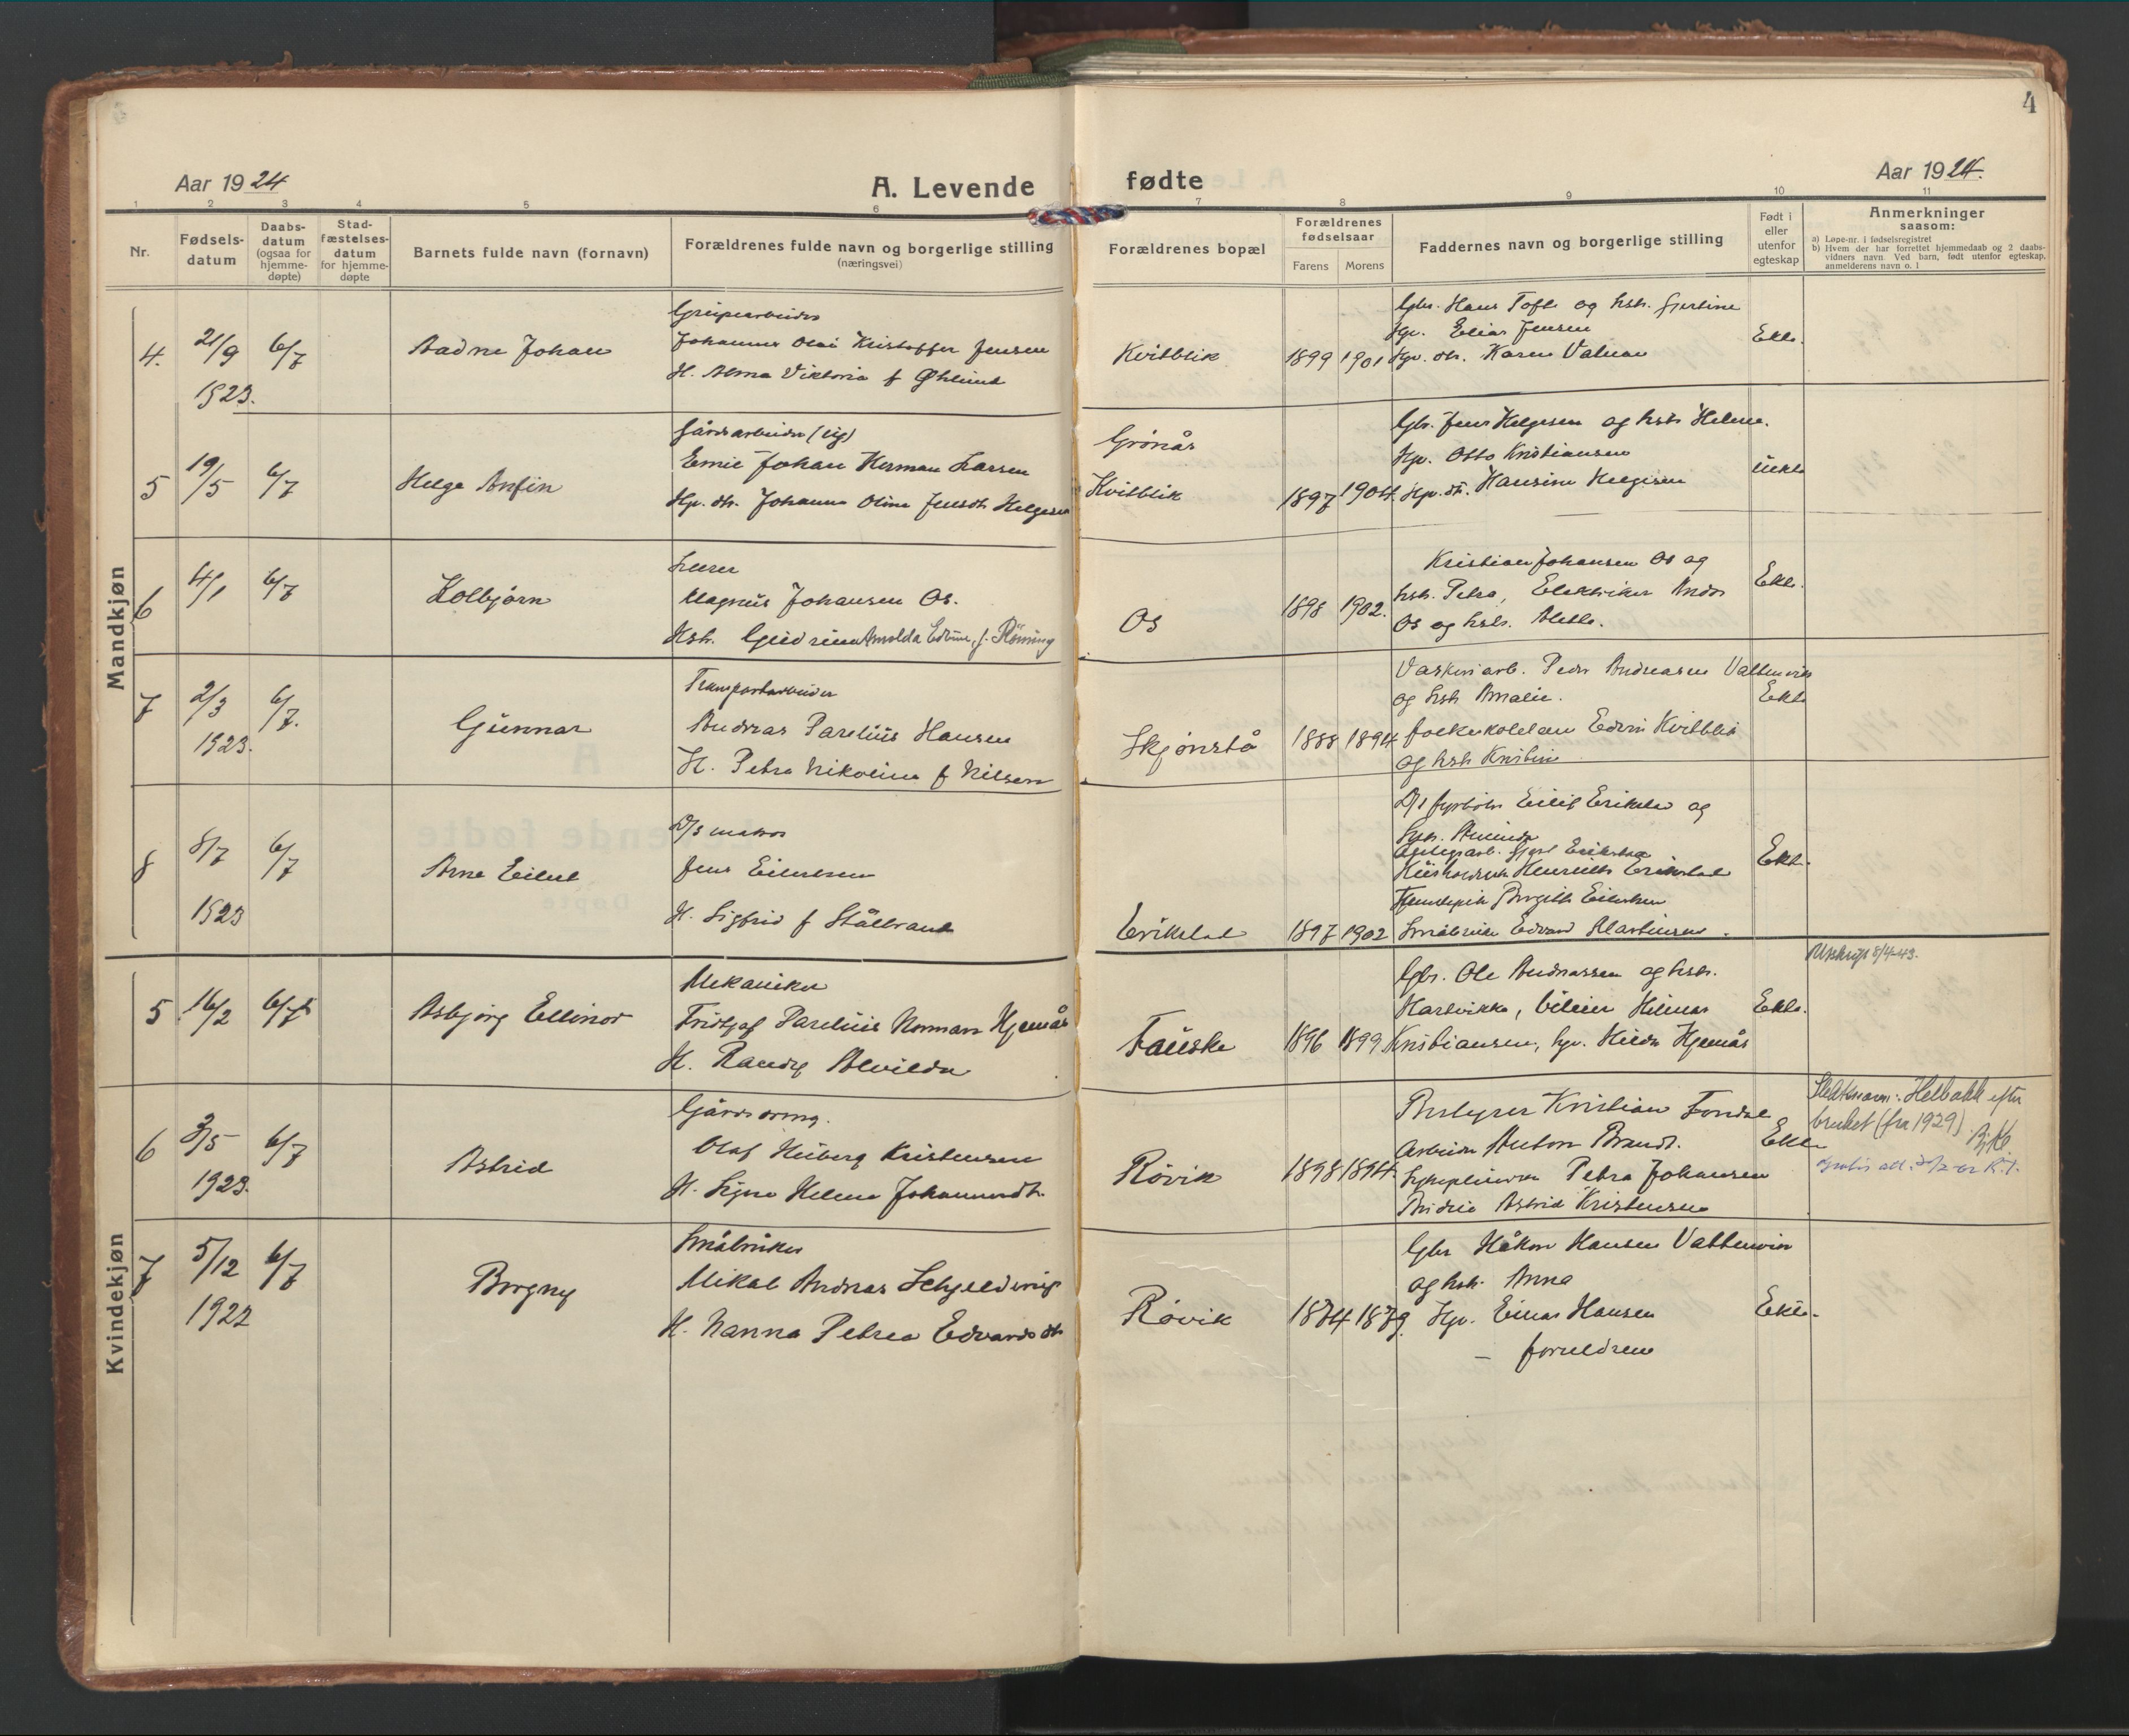 4
Aar 1924
A. Levende fødte
Aar 1924.
1 2 3 4 5 6 7 8 9 10 11
Nr.
Fødsels-
datum
Daabs-
datum
(ogsaa for
hjemme-
døpte)
Stad-
fæstelses-
datum
for hjemme-
døpte
Barnets fulde navn (fornavn)
Forældrenes fulde navn og borgerlige stilling
(næringsvei)
Forældrenes bopæl
Forældrenes
fødselsaar
Farens Morens
Faddernes navn og borgerlige stilling
Født i
eller
utenfor
egteskap
Anmerkninger
saasom:
a) Løpe-nr. i fødselsregistret
b) Hvem der har forrettet hjemmedaab og 2 daabs-
vidners navn. Ved barn, født utenfor egteskap,
anmelderens navn o. l
Mandkjøn
4. 21/9 1923. 6/7
Aadne Johan
Johannes Olai Kristoffer Jensen
H. Alma Viktoria f Øhlund
Kvitblik 1899 1901
Gbr. Hans Toft og hstr.
Elias Jensen
Karen Valnes
Ekte.
5 19/5 6/7
Helge Anfin
Gårdsarbeider (ug)
Emil Johan Herman Larsen
Hp. dtr. Johanna Oline Jensdtr Helgesen
Grønås
Kvitblik 1897 1904.
Gbr. Jens Helgesen og hstr Helene.
Hp. Otto Kristiansen
Hp. dt. Hansine Helgesen
uekte
6 4/1 6/7
Kolbjørn
Lærer
Magnus Johansen Os.
Hstr. Gudrun Arnolda Edvine, f. Fløining
Os 1898 1902.
Kristian Johansen Os og
hstr. Petra, Elektriker
Os og hstr.
Ekte.
7 2/3 1923. 6/7.
Gunnar
Transportarbeider
Andreas Parelius Hansen
H. Petra Nikoline f Nilsen
Skjønstå 1888 1894
Vaskeriarb. Peder Andreasen Vattenvik
og hstr Amalie.
Edvin Kvitblik
og hstr Kristine
Ekte
8 8/7 1923 6/7
Arne Eilert
D/s matros
Jens Eilertsen
H. Sigfrid f Stålbrand
Erikstad 1897 1902
D/s fyrbøter Eilif Erikstad og
Henriette Erikstad
Borgith Eilertsen
Småbruker Edvard Martinsen.
Ekte.
Kvindekjøn
5 16/2 6/7
Asbjørg Ellinor
Mekaniker
Fridtjof Parelius Normann Hjemås
H. Randy Alvilda
Fauske 1896 1899
Gbr. Ole Andreassen og hstr.
Hartvikke, Hilmar
Kristiansen, hp. Hilda Hjemås
Ekte.
Utskrift 8/4-43.
6 3/5 1923. 6/7
Astrid
Olaf Heiberg Kristensen
H. Signe Helene
Røvik 1898 1894.
Bestyrer Kristian Fondal
Arbeider Anton Brandt.
Petra Johansen
Astrid Kristensen
Ekte
Slektsnavn: Helbakk efter
bruket (fra 1929).
7 5/12 1922 6/7
Borgny
Småbruker
Mikal Andreas Schjelderup
H. Nanna Petrea Edvardsdtr
Røvik 1874 1879.
Gbr Håkon Hansen Vattenvik
og hstr. Anna
Hp. Einar Hansen
– foreldrene
Ekte.